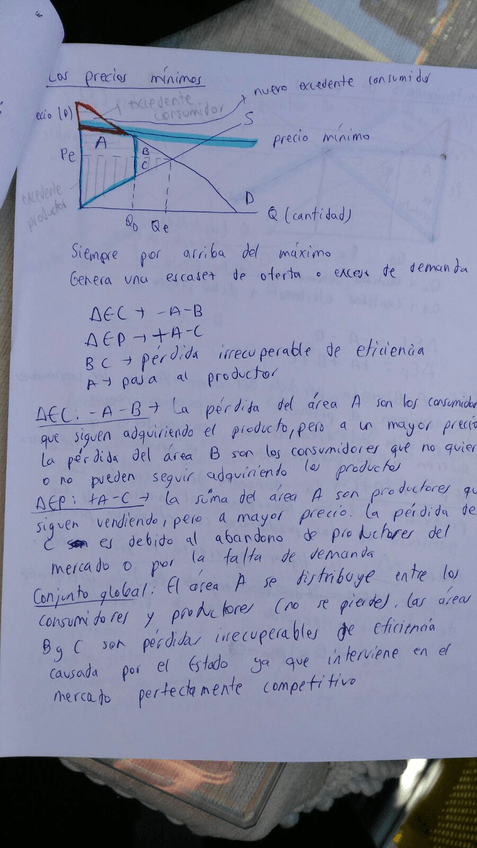 Los precios mínimos
nuevo excedente consumidor
excedente
consumidor
ecio (P)
S
A
precio mínimo
Pe
B
C
excedente
productor
D
Q0 Qe
Q (cantidad)
Siempre por arriba del máximo
Genera una escasez de oferta o exceso de demanda
ΔEC → -A-B
ΔEP → +A-C
BC → pérdida irrecuperable de eficiencia
A → pasa al productor
ΔEC: -A-B → La pérdida del área A son los consumidor
que siguen adquiriendo el producto, pero a un mayor precio
la pérdida del área B son los consumidores que no quier
o no pueden seguir adquiriendo los productos
ΔEP: +A-C → la suma del área A son productores qu
siguen vendiendo, pero a mayor precio. La pérdida de
C es debido al abandono de productores del
mercado o por la falta de demanda
Conjunto global: El área A se distribuye entre los
consumidores y productores (no se pierde). Las áreas
B y C son pérdidas irrecuperables de eficiencia
causada por el Estado ya que interviene en el
mercado perfectamente competitivo